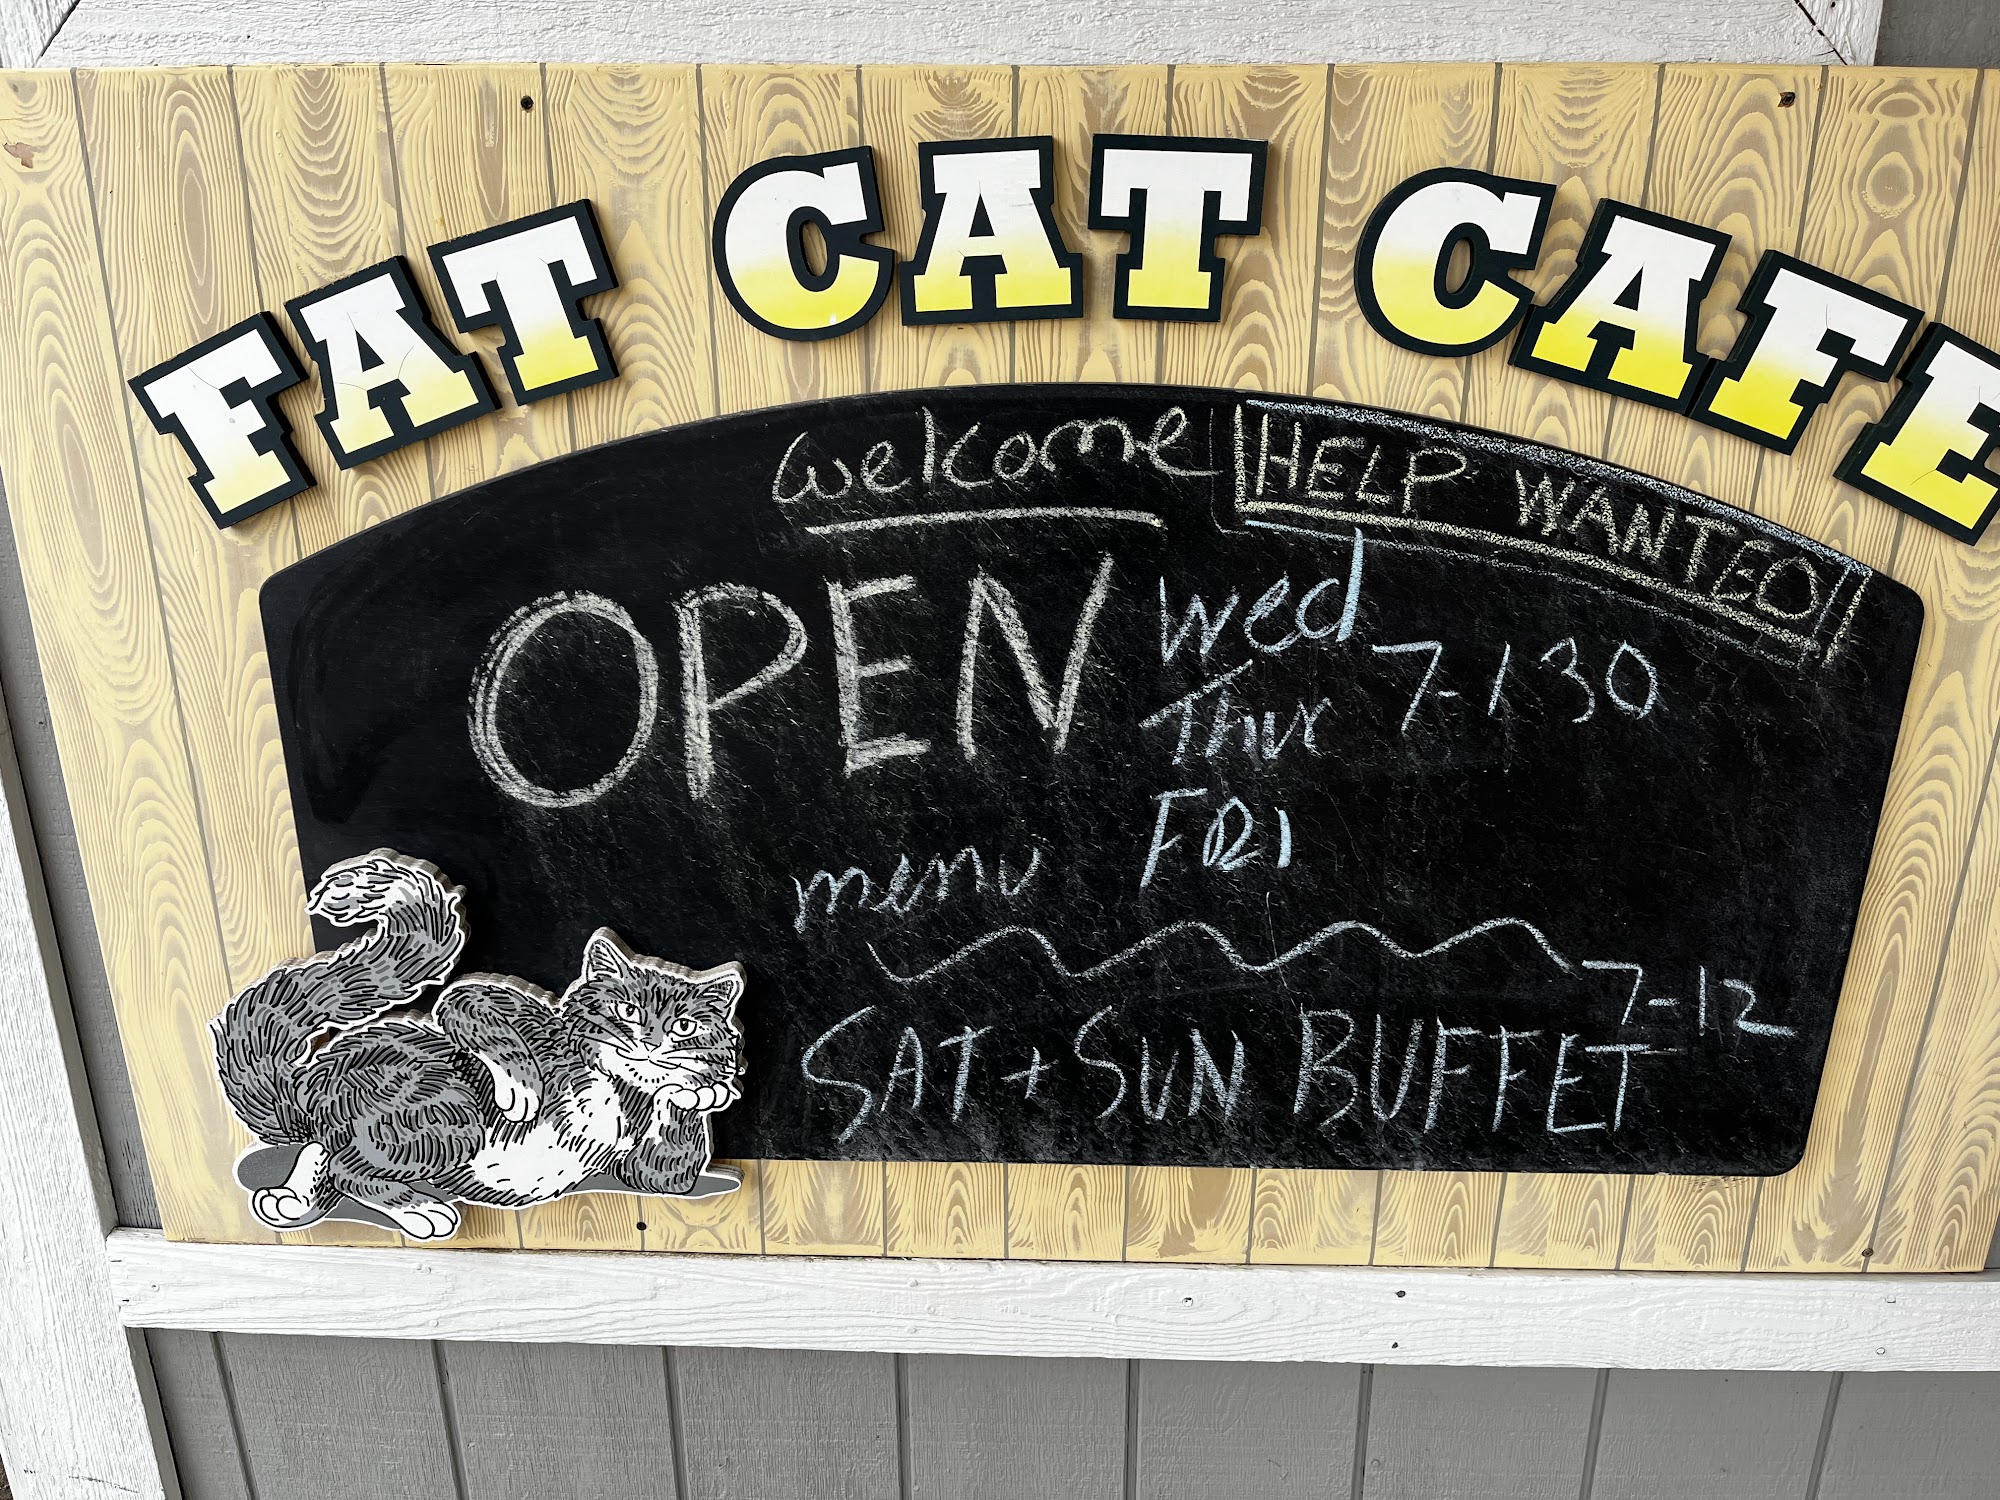 FAT CAT CAFE
welcome
HELP WANTED!!
OPEN
Wed
Thur 7-130
FRI
menu
7-12
SAT + SUN BUFFET